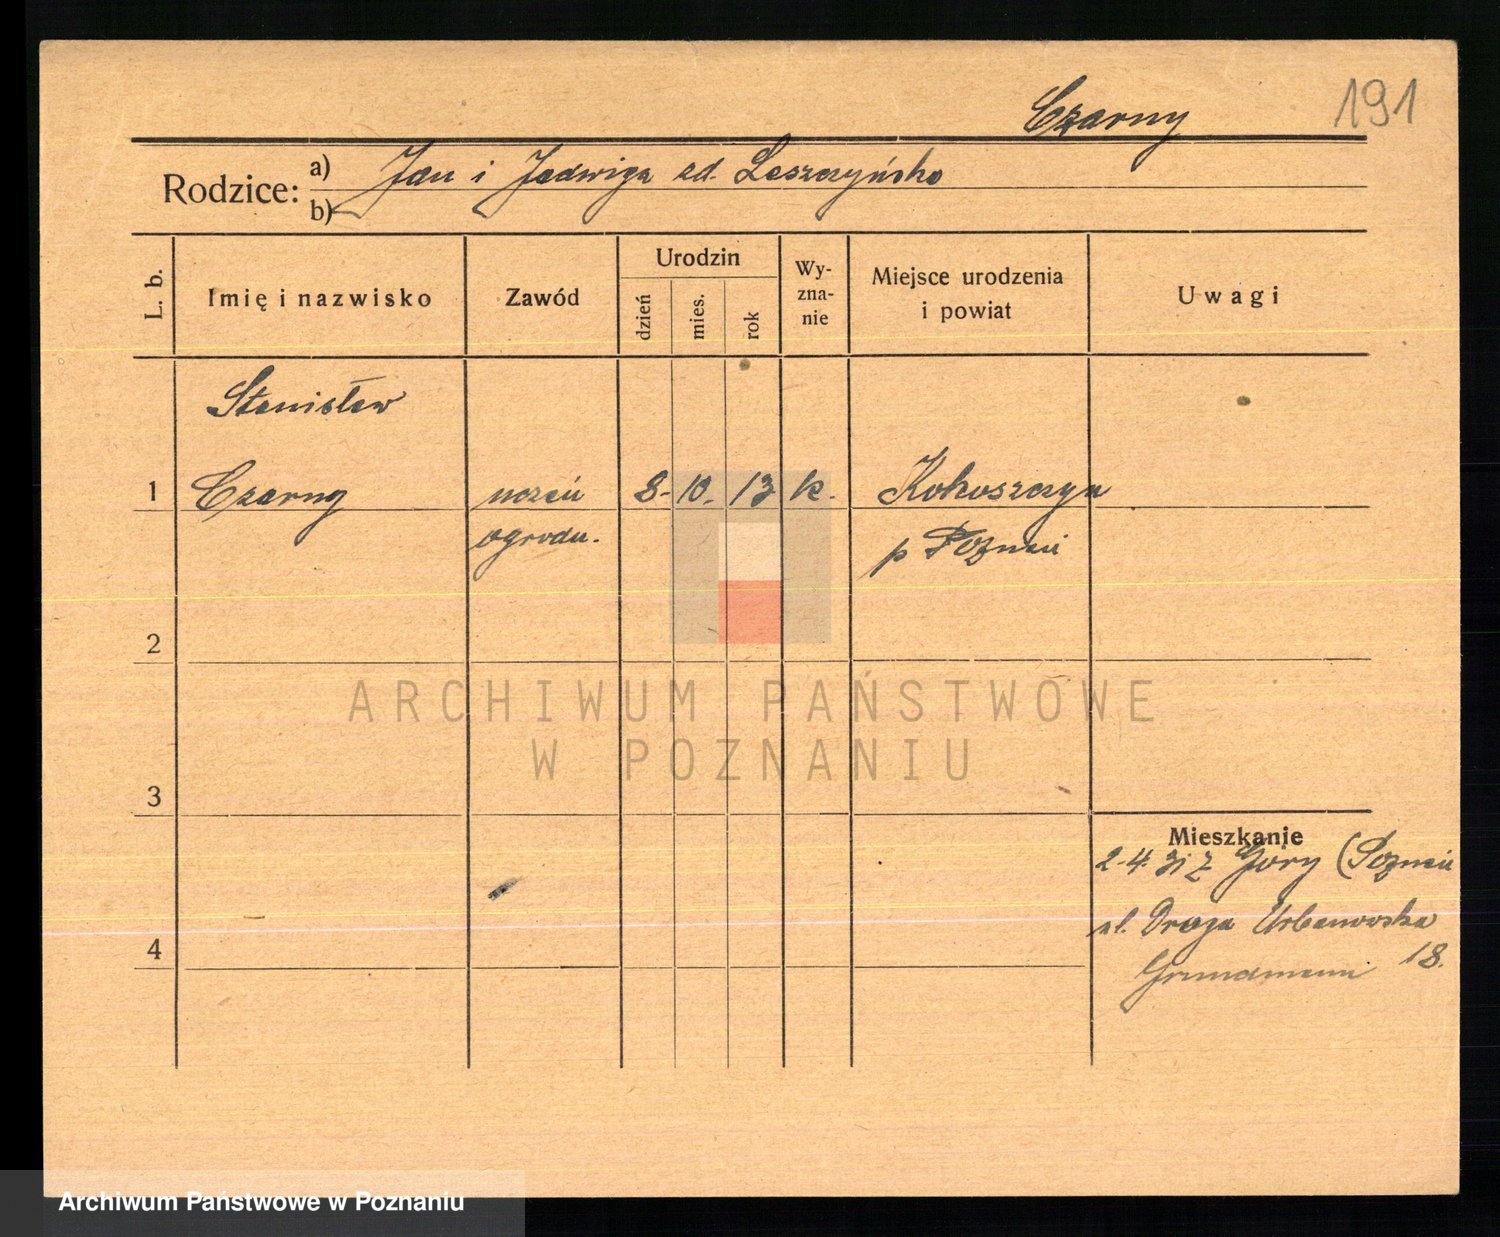 Czarny 191
Rodzice: a) Jan i Jadwiga zd. Leszczyńska
b)
L. b. Imię i nazwisko Zawód Urodzin dzień mies. rok Wy-zna-nie Miejsce urodzenia i powiat Uwagi
Stanisław
1 Czarny uczeń 8. 10. 13 k. Kokoszczyn
ogrodn. p Poznań
2
ARCHIWUM PAŃSTWOWE
W POZNANIU
3
Mieszkanie
2.4. 31 z Góry (Poznań
ul. Droga Urbanowska
4 18.
Grundmann
Archiwum Państwowe w Poznaniu